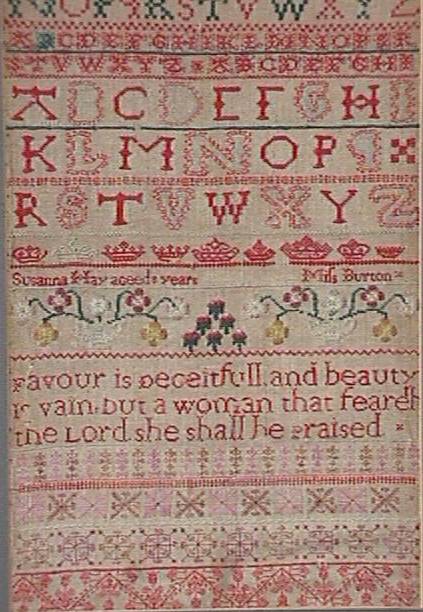 N O P Q R S T V W X Y Z
A B C D E F G H I K L M N O P Q R
S T V W X Y Z A B C D E F G H I
A B C D E F G H I
K L M N O P Q
R S T V W X Y Z
Susanna May aged years
Burton
Favour is Deceitfull and beauty
is vain but a woman that feareth
the Lord she shall be praised